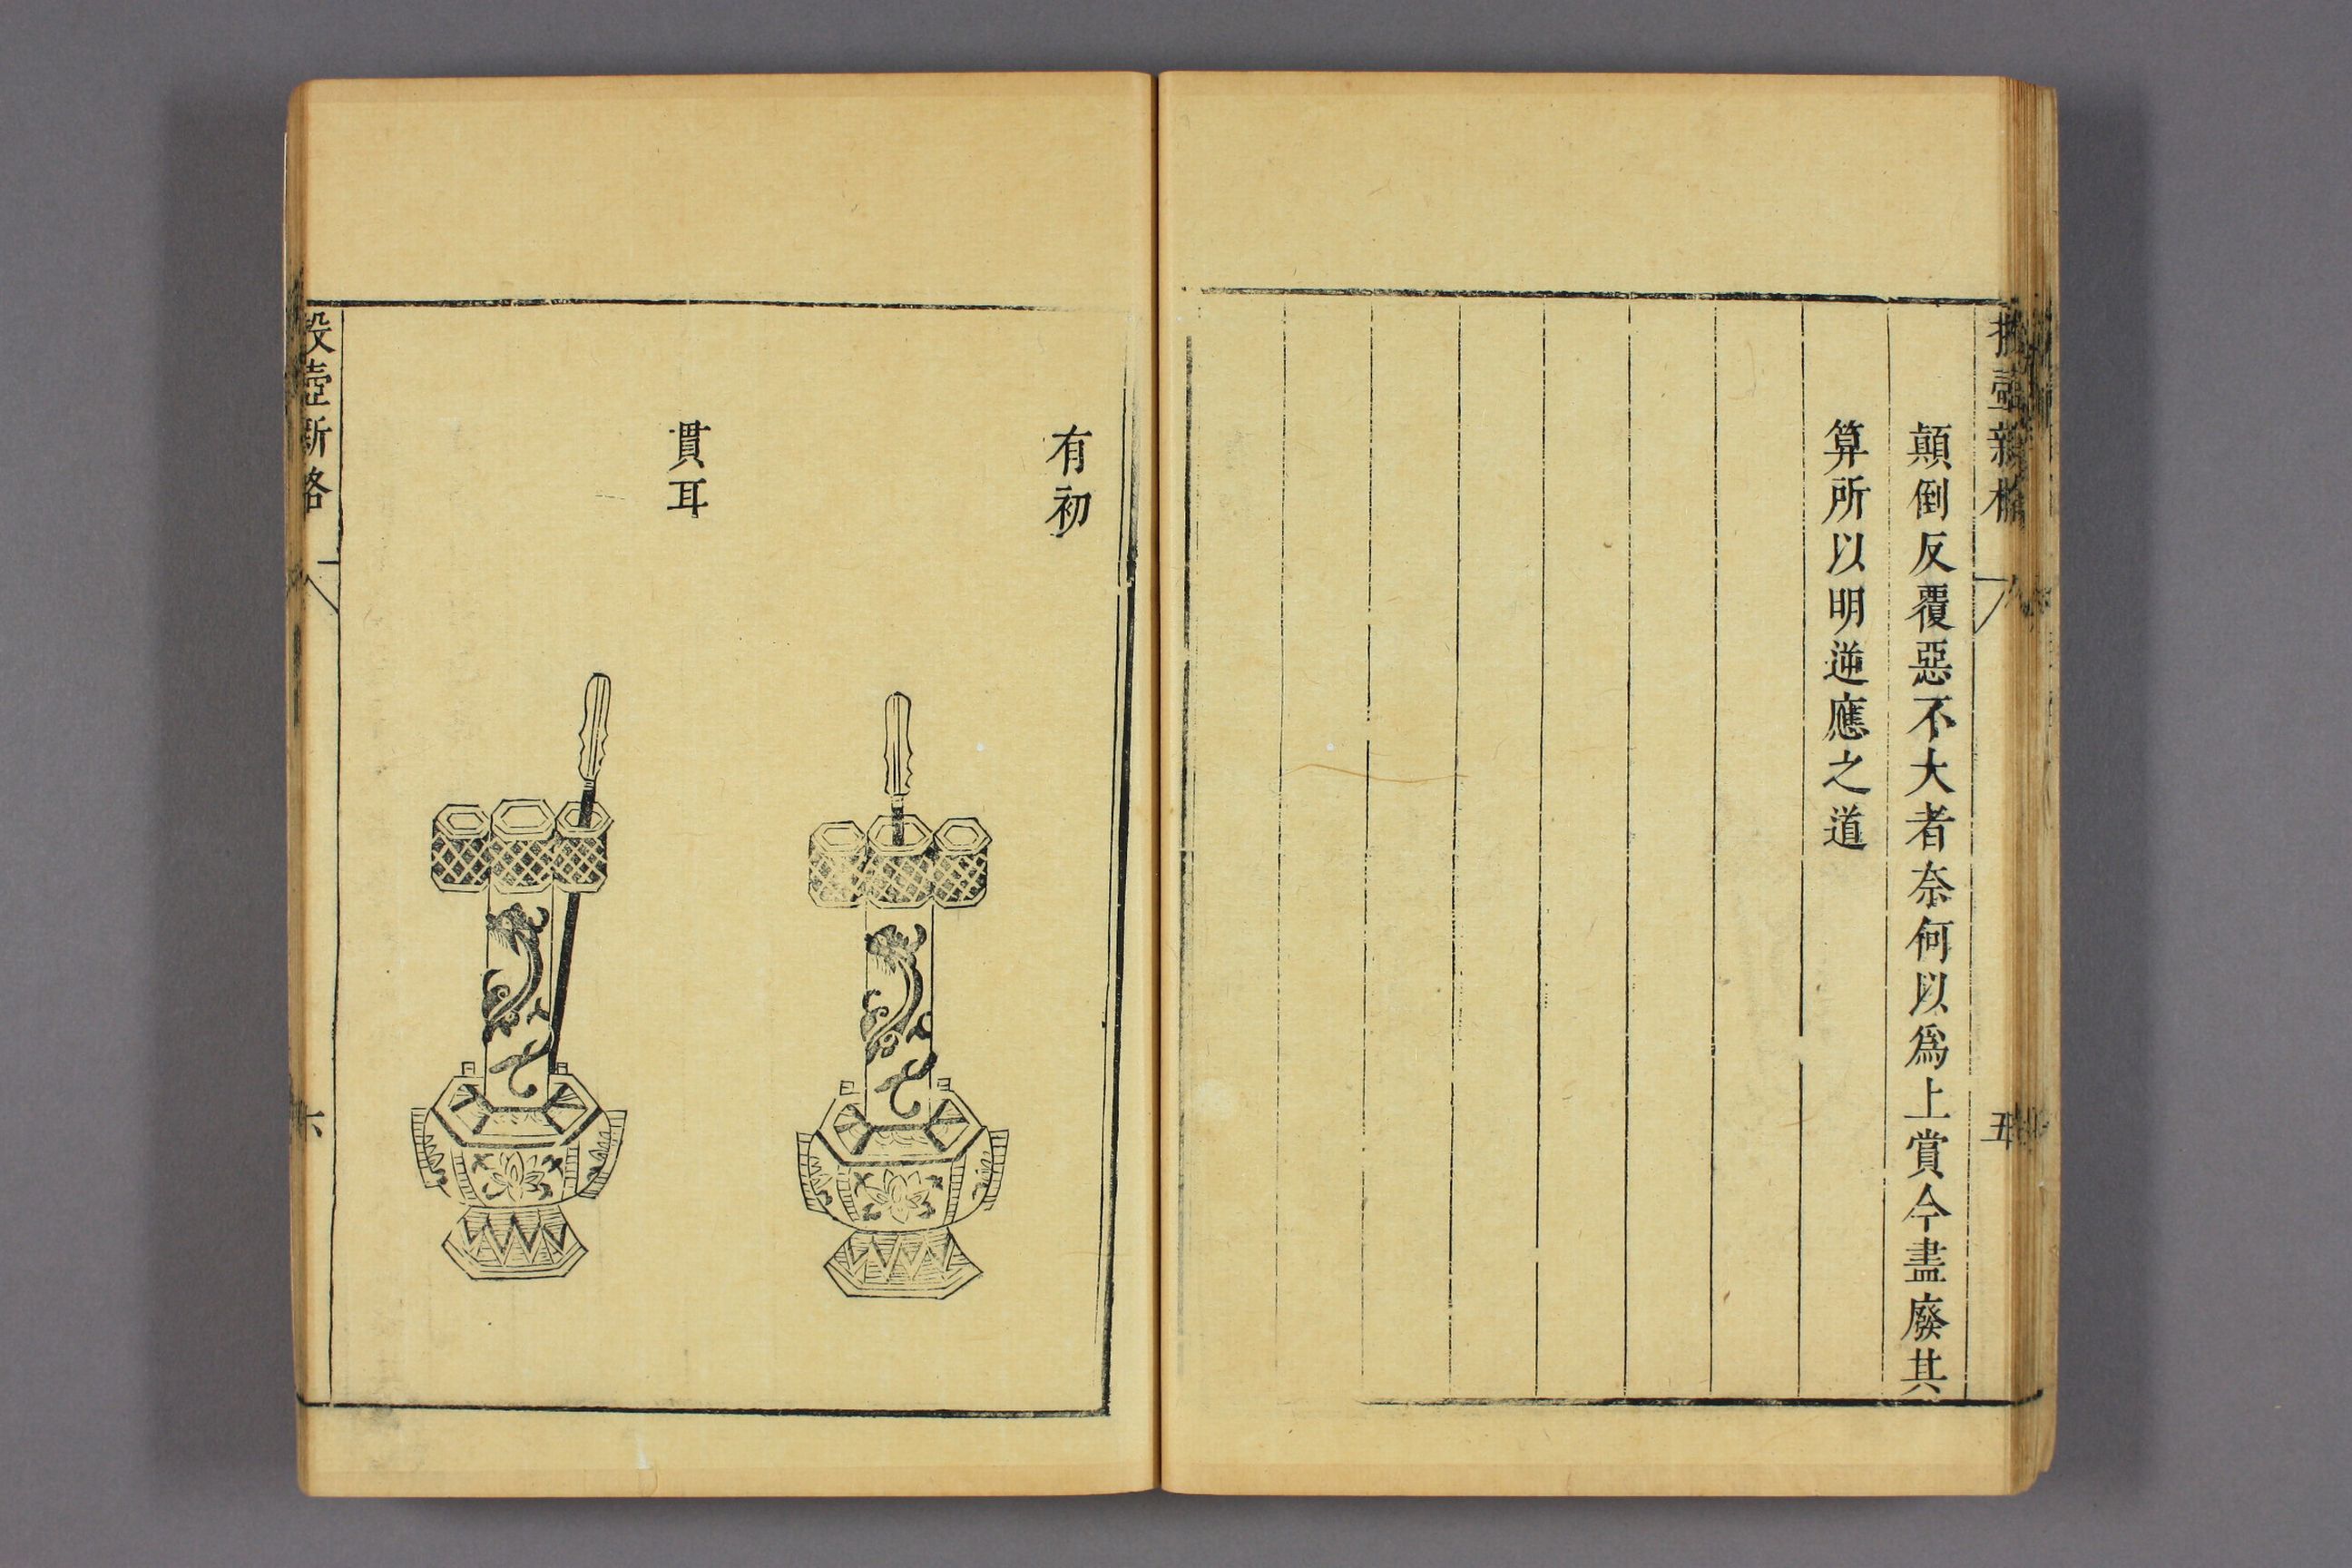 投壺新格
五
顛倒反覆惡不大者奈何以爲上賞今盡廢其
算所以明逆應之道
有初
貫耳
投壺新格
六